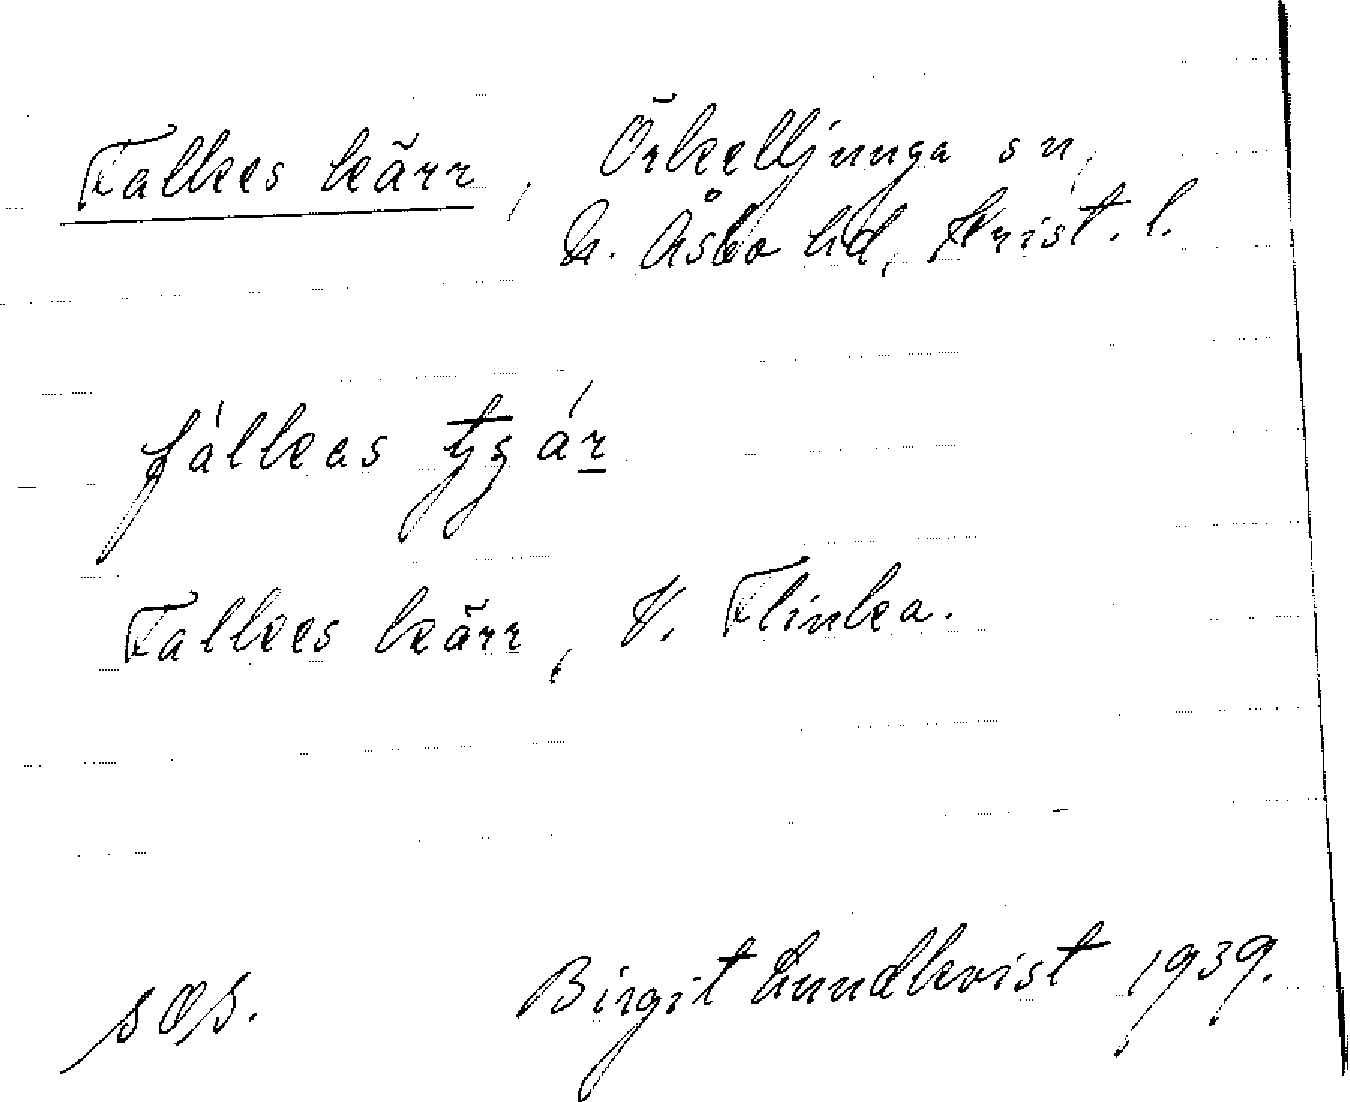 Falkes kärr, Örkelljunga sn,
N. Åsbo hd, Krist. l.
fálkas
Falkes kärr, V. Flinka.
SOS. Birgit Lundkvist 1939.